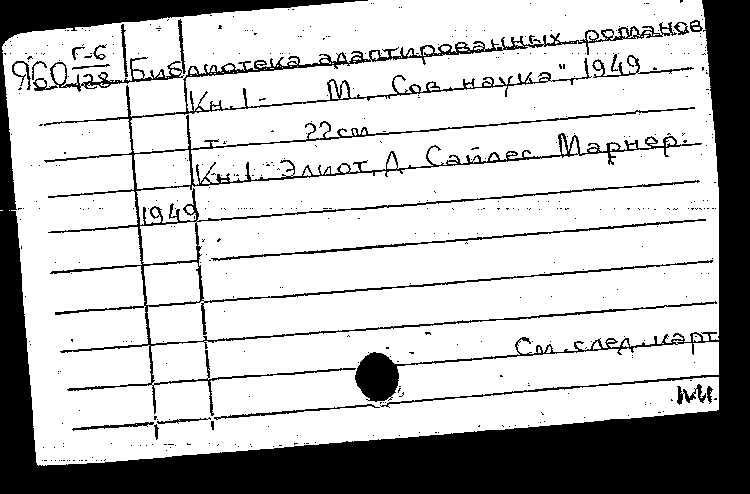 Я60 Г-6/128 Библиотека адаптированных романов
Кн.1- М., Сов. наука", 1949.
т. 22см.
Кн.1. Элиот, Д. Сайлес Марнер.
1949
См. след. карт